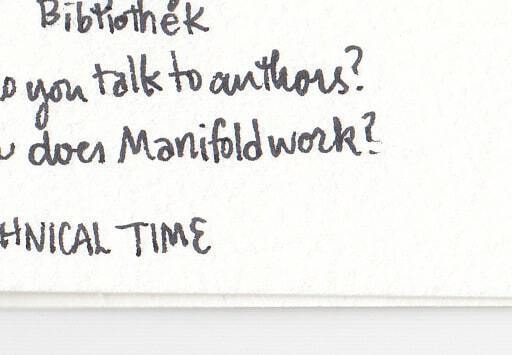 Bibliothek
o you talk to authors?
w does Manifold work?
HNICAL TIME